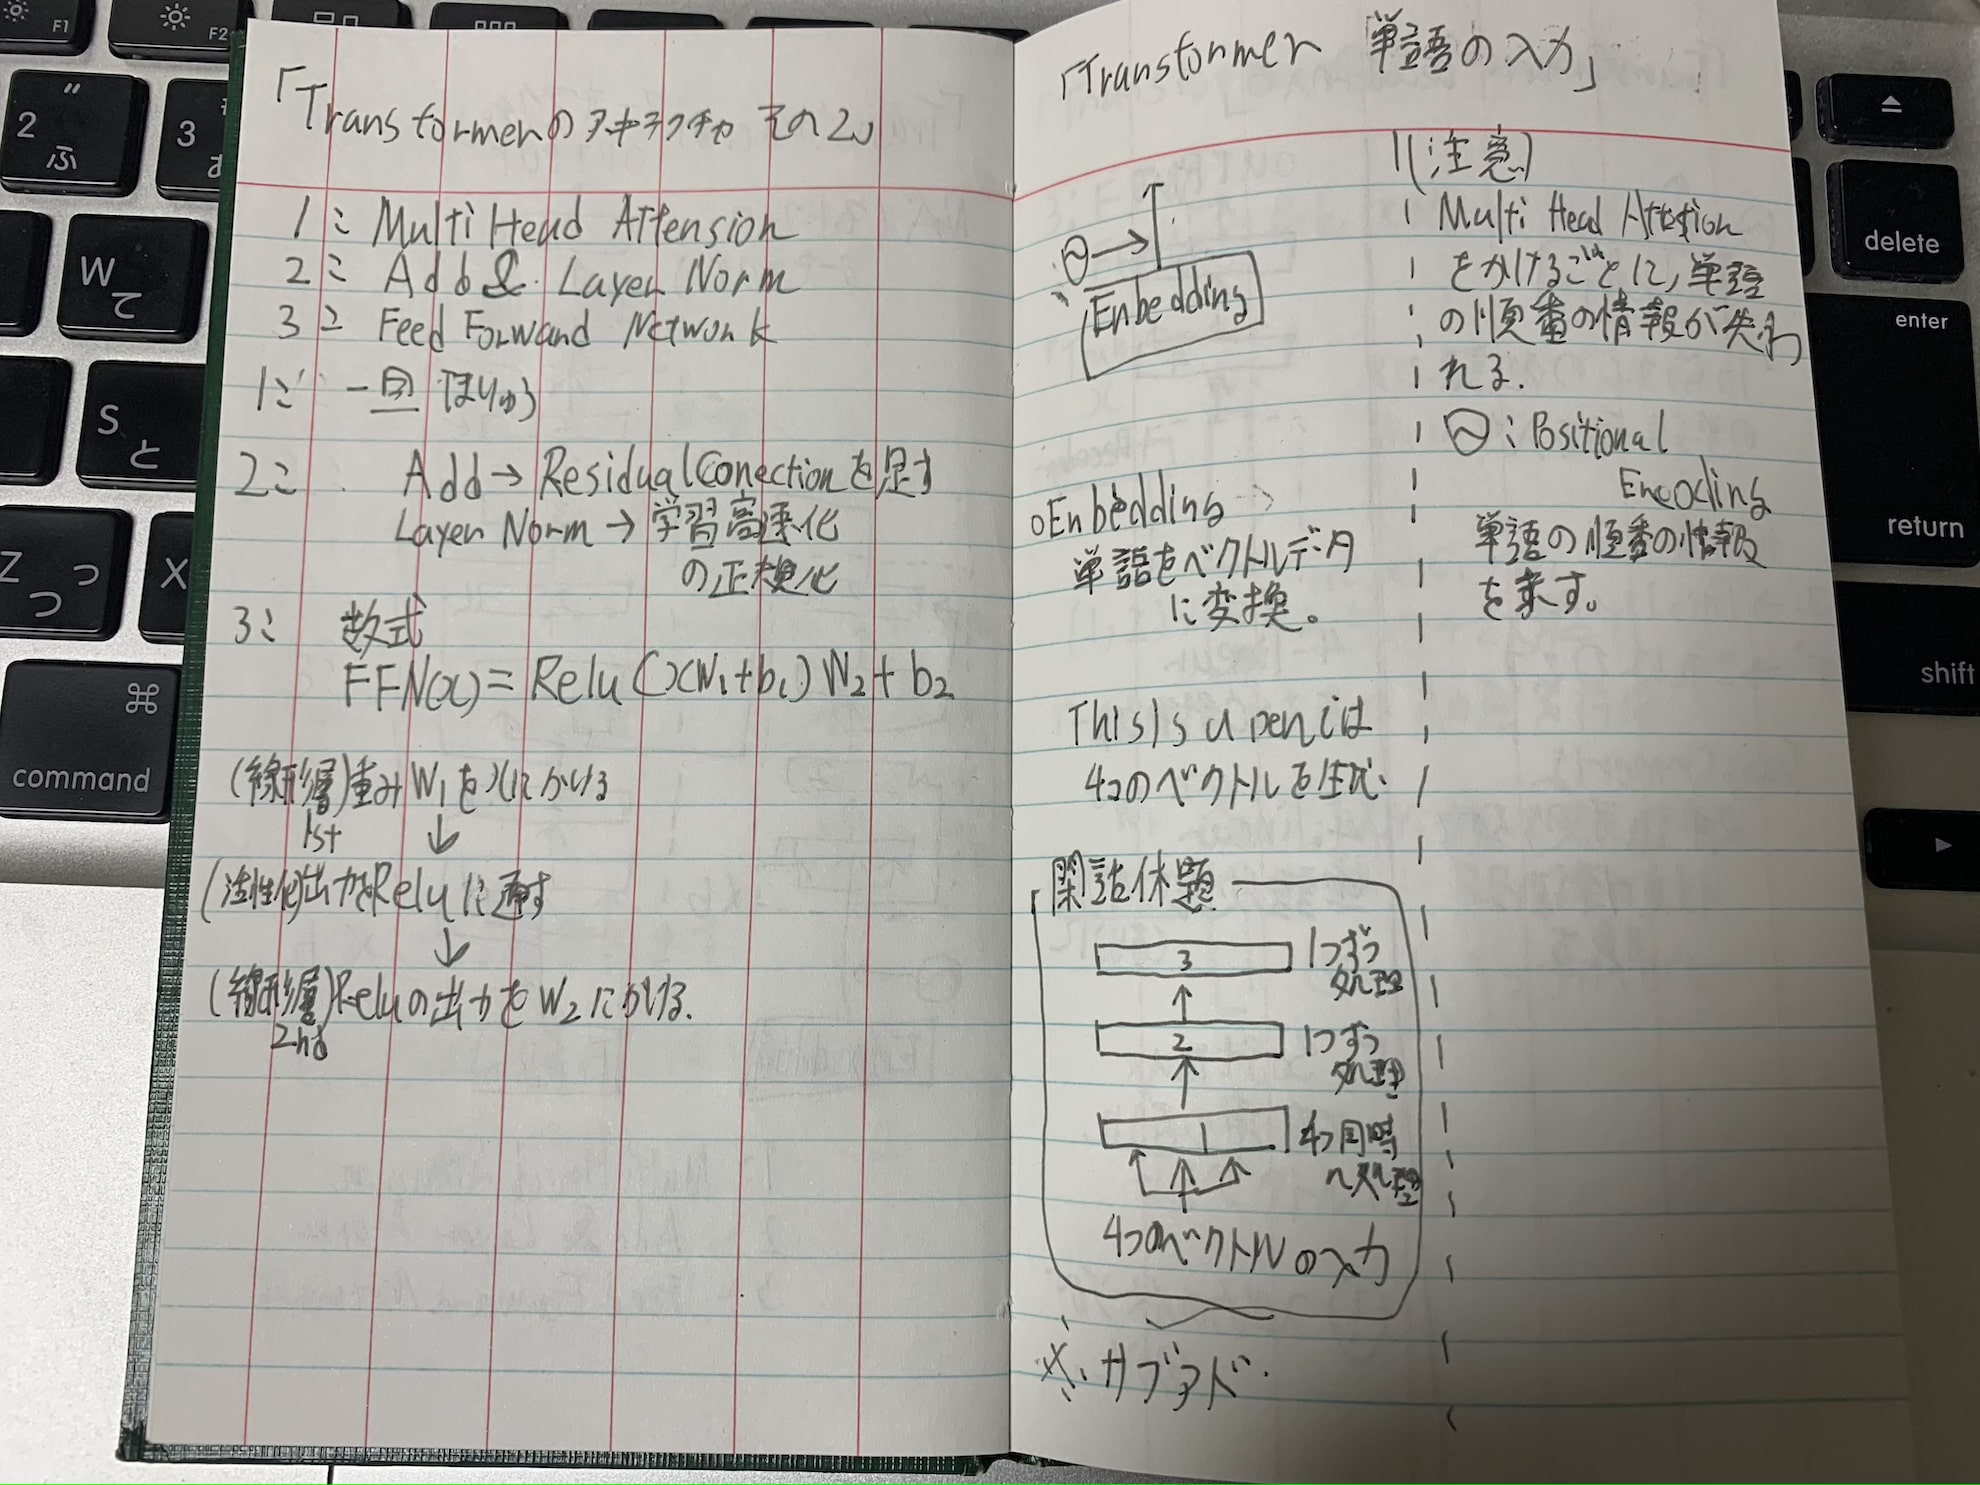 「Transformerのアーキテクチャ その2」
1: Multi Head Attension
2: Add & Layer Norm
3: Feed Forward Network
1: 一旦 ほりゅう
2: Add → Residual Conectionを足す
Layer Norm → 学習高速化
の正規化
3: 数式
FFN(x) = Relu(xW₁+b₁)W₂+b₂
(線形層)重みW₁をxにかける
1st
↓
(活性化)出力をReluに通す
↓
(線形層)Reluの出力をW₂にかける.
2nd
「Transformer 単語の入力」
Enbedding
○Enbedding
単語をベクトルデータ
に変換。
This is a penは
4つのベクトルを生成.
閑話休題
3 1つずつ
処理
2 1つずつ
処理
1 4つ同時
処理
4つのベクトルの入力
※
(注意)
Multi Head Attention
をかけるごとに,単語
の順番の情報が失わ
れる.
: Positional
Encoding
単語の順番の情報
を
F1
F2
2
ふ
3
W
て
S
と
Z
つ
っ
X
⌘
command
⏏
delete
enter
return
shift
▶